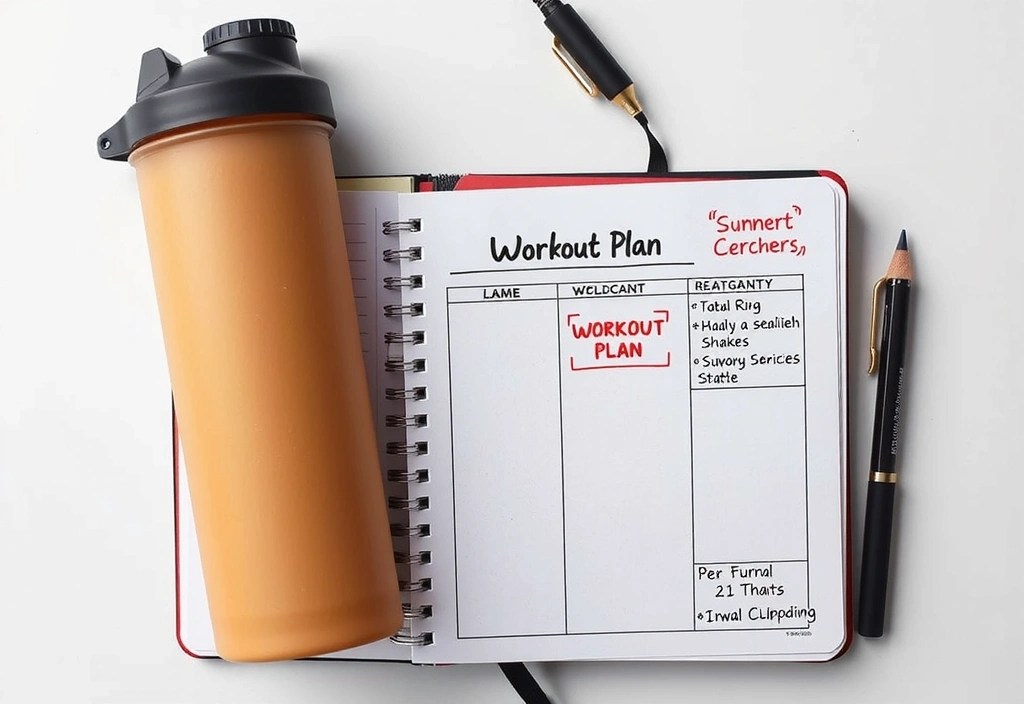 Workout Plan
"Sunnert"
Cerchers,,
LAME
WCLDCANT
REATGANTY
WORKOUT
PLAN
Total Rig
Haaly a sealileh
Shakes
Suvory Serices
Statte
Per Furnal
21 Thaits
Inwal Clippding